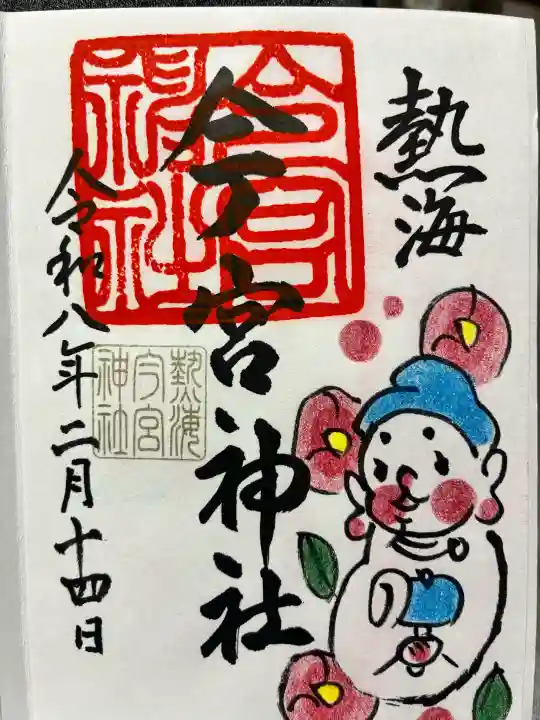 熱海
今宮神社
今宮神社
熱海
今宮
神社
令和八年二月十四日